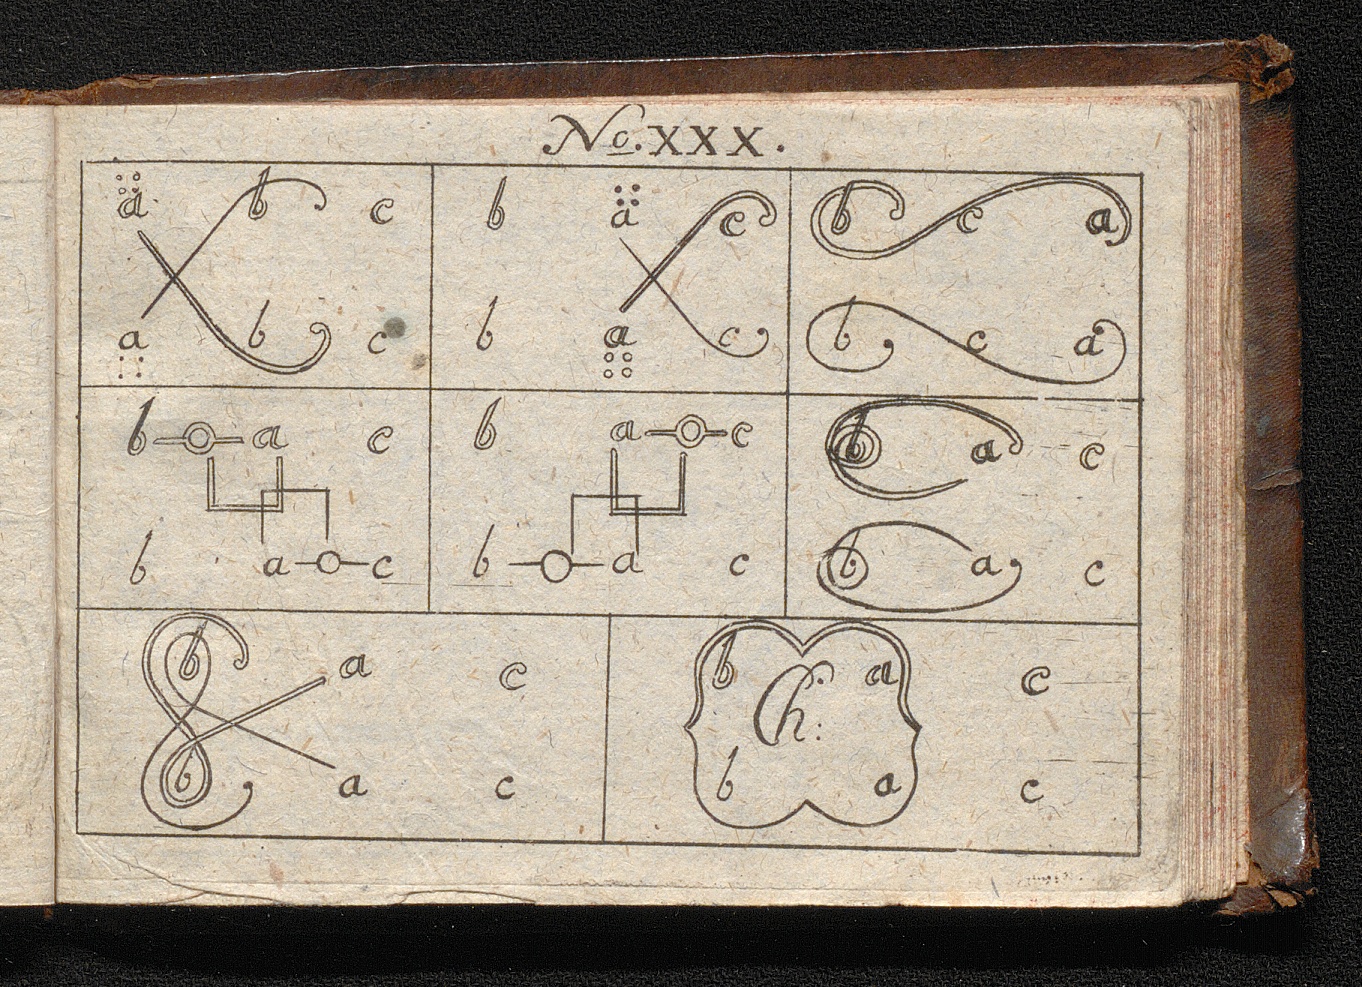 No. XXX.
a b c
a b c
b a c
b a c
b c a
b c a
b a c
b a c
b a c
b a c
b a c
b a c
b a c
b a c
b a c
Ch:
b a c